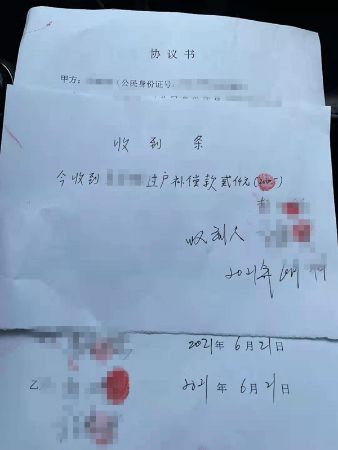 协议书
甲方：（公民身份证号
收到条
今收到 过户补偿款贰仟元
收到人
2021年
2021年6月21日
乙
2021年6月21日